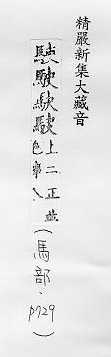 精嚴新集大藏音
駛駛駃駛上二正
色
(馬部.p729)